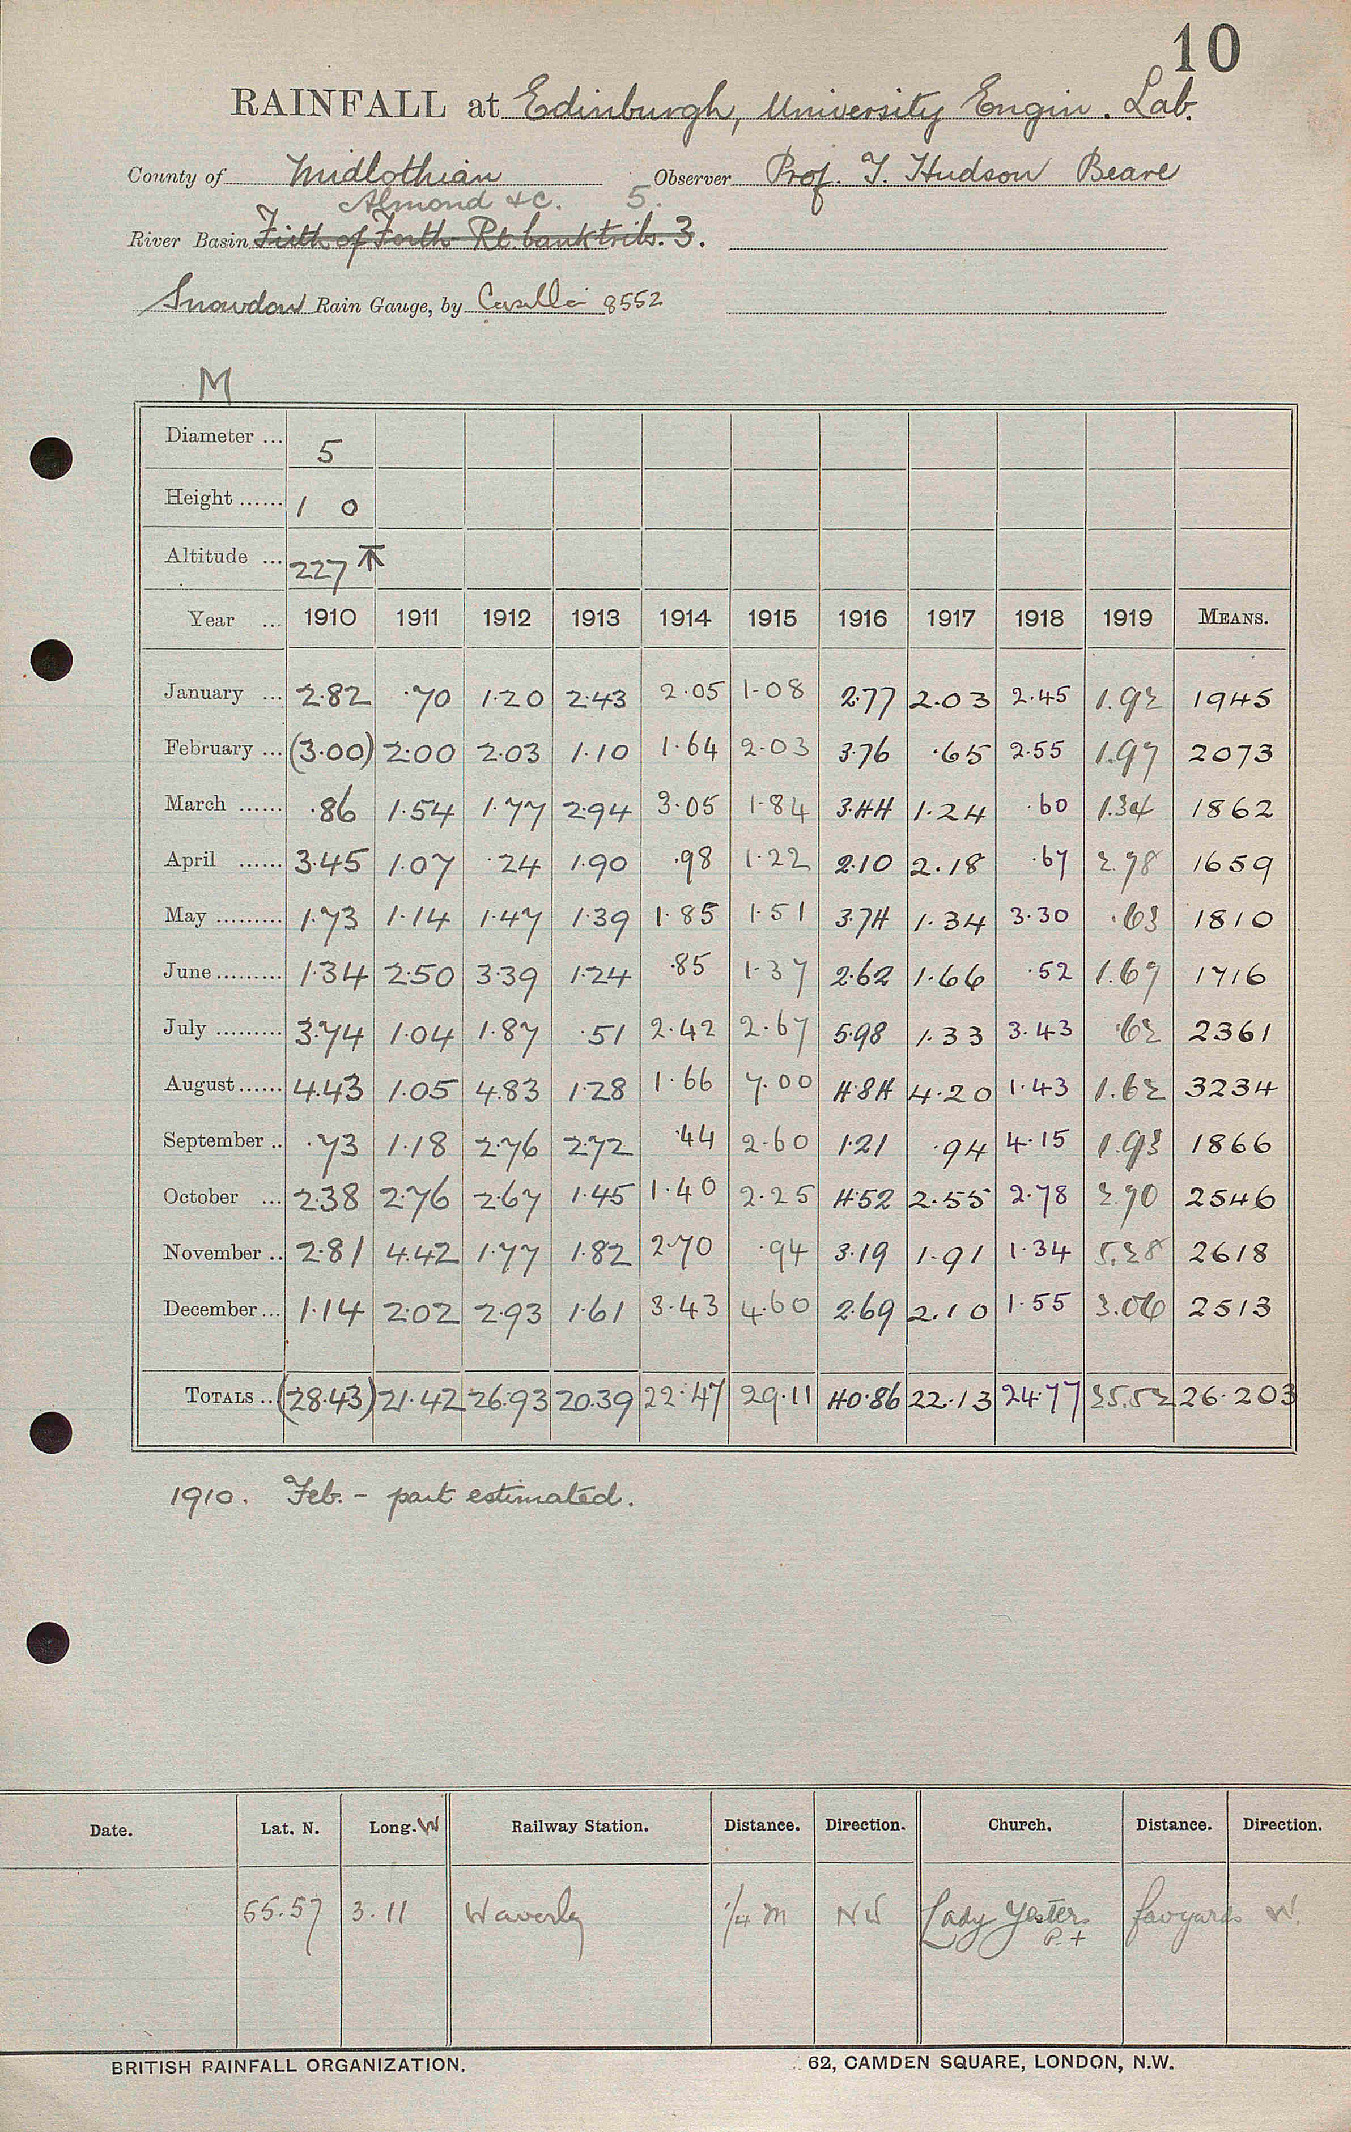 10
RAINFALL at Edinburgh, University Engin. Lab.
County of Midlothian Observer Prof. T. Hudson Beare
Almond &c. 5.
River Basin Firth of Forth Rt. bank tribs. 3.
Snowdon Rain Gauge, by Casella 8552
M
Diameter ... 5
Height ...... 1 0
Altitude ... 227 ↑
Year ... 1910 1911 1912 1913 1914 1915 1916 1917 1918 1919 MEANS.
January ... 2.82 .70 1.20 2.43 2.05 1.08 2.77 2.03 2.45 1.92 1945
February ... (3.00) 2.00 2.03 1.10 1.64 2.03 3.76 .65 2.55 1.97 2073
March ...... .86 1.54 1.77 2.94 3.05 1.84 3.44 1.24 .60 1.34 1862
April ...... 3.45 1.07 .24 1.90 .98 1.22 2.10 2.18 .67 2.78 1659
May ......... 1.73 1.14 1.47 1.39 1.85 1.51 3.74 1.34 3.30 .63 1810
June ......... 1.34 2.50 3.39 1.24 .85 1.37 2.62 1.66 .52 1.67 1716
July ......... 3.74 1.04 1.87 .51 2.42 2.67 5.98 1.33 3.43 .62 2361
August ...... 4.43 1.05 4.83 1.28 1.66 7.00 4.84 4.20 1.43 1.62 3234
September .. .73 1.18 2.76 2.72 .44 2.60 1.21 .94 4.15 1.93 1866
October ... 2.38 2.76 2.67 1.45 1.40 2.25 4.52 2.55 2.78 2.70 2546
November .. 2.81 4.42 1.77 1.82 2.70 .94 3.19 1.91 1.34 5.28 2618
December ... 1.14 2.02 2.93 1.61 3.43 4.60 2.69 2.10 1.55 3.06 2513
TOTALS .. (28.43) 21.42 26.93 20.39 22.47 29.11 40.86 22.13 24.77 25.52 26.203
1910. Feb. - part estimated.
Date. Lat. N. Long. W Railway Station. Distance. Direction. Church. Distance. Direction.
55.57 3.11 Waverley 1/4 m NW Lady Yester's few yards W.
P. +
BRITISH RAINFALL ORGANIZATION. 62, CAMDEN SQUARE, LONDON, N.W.